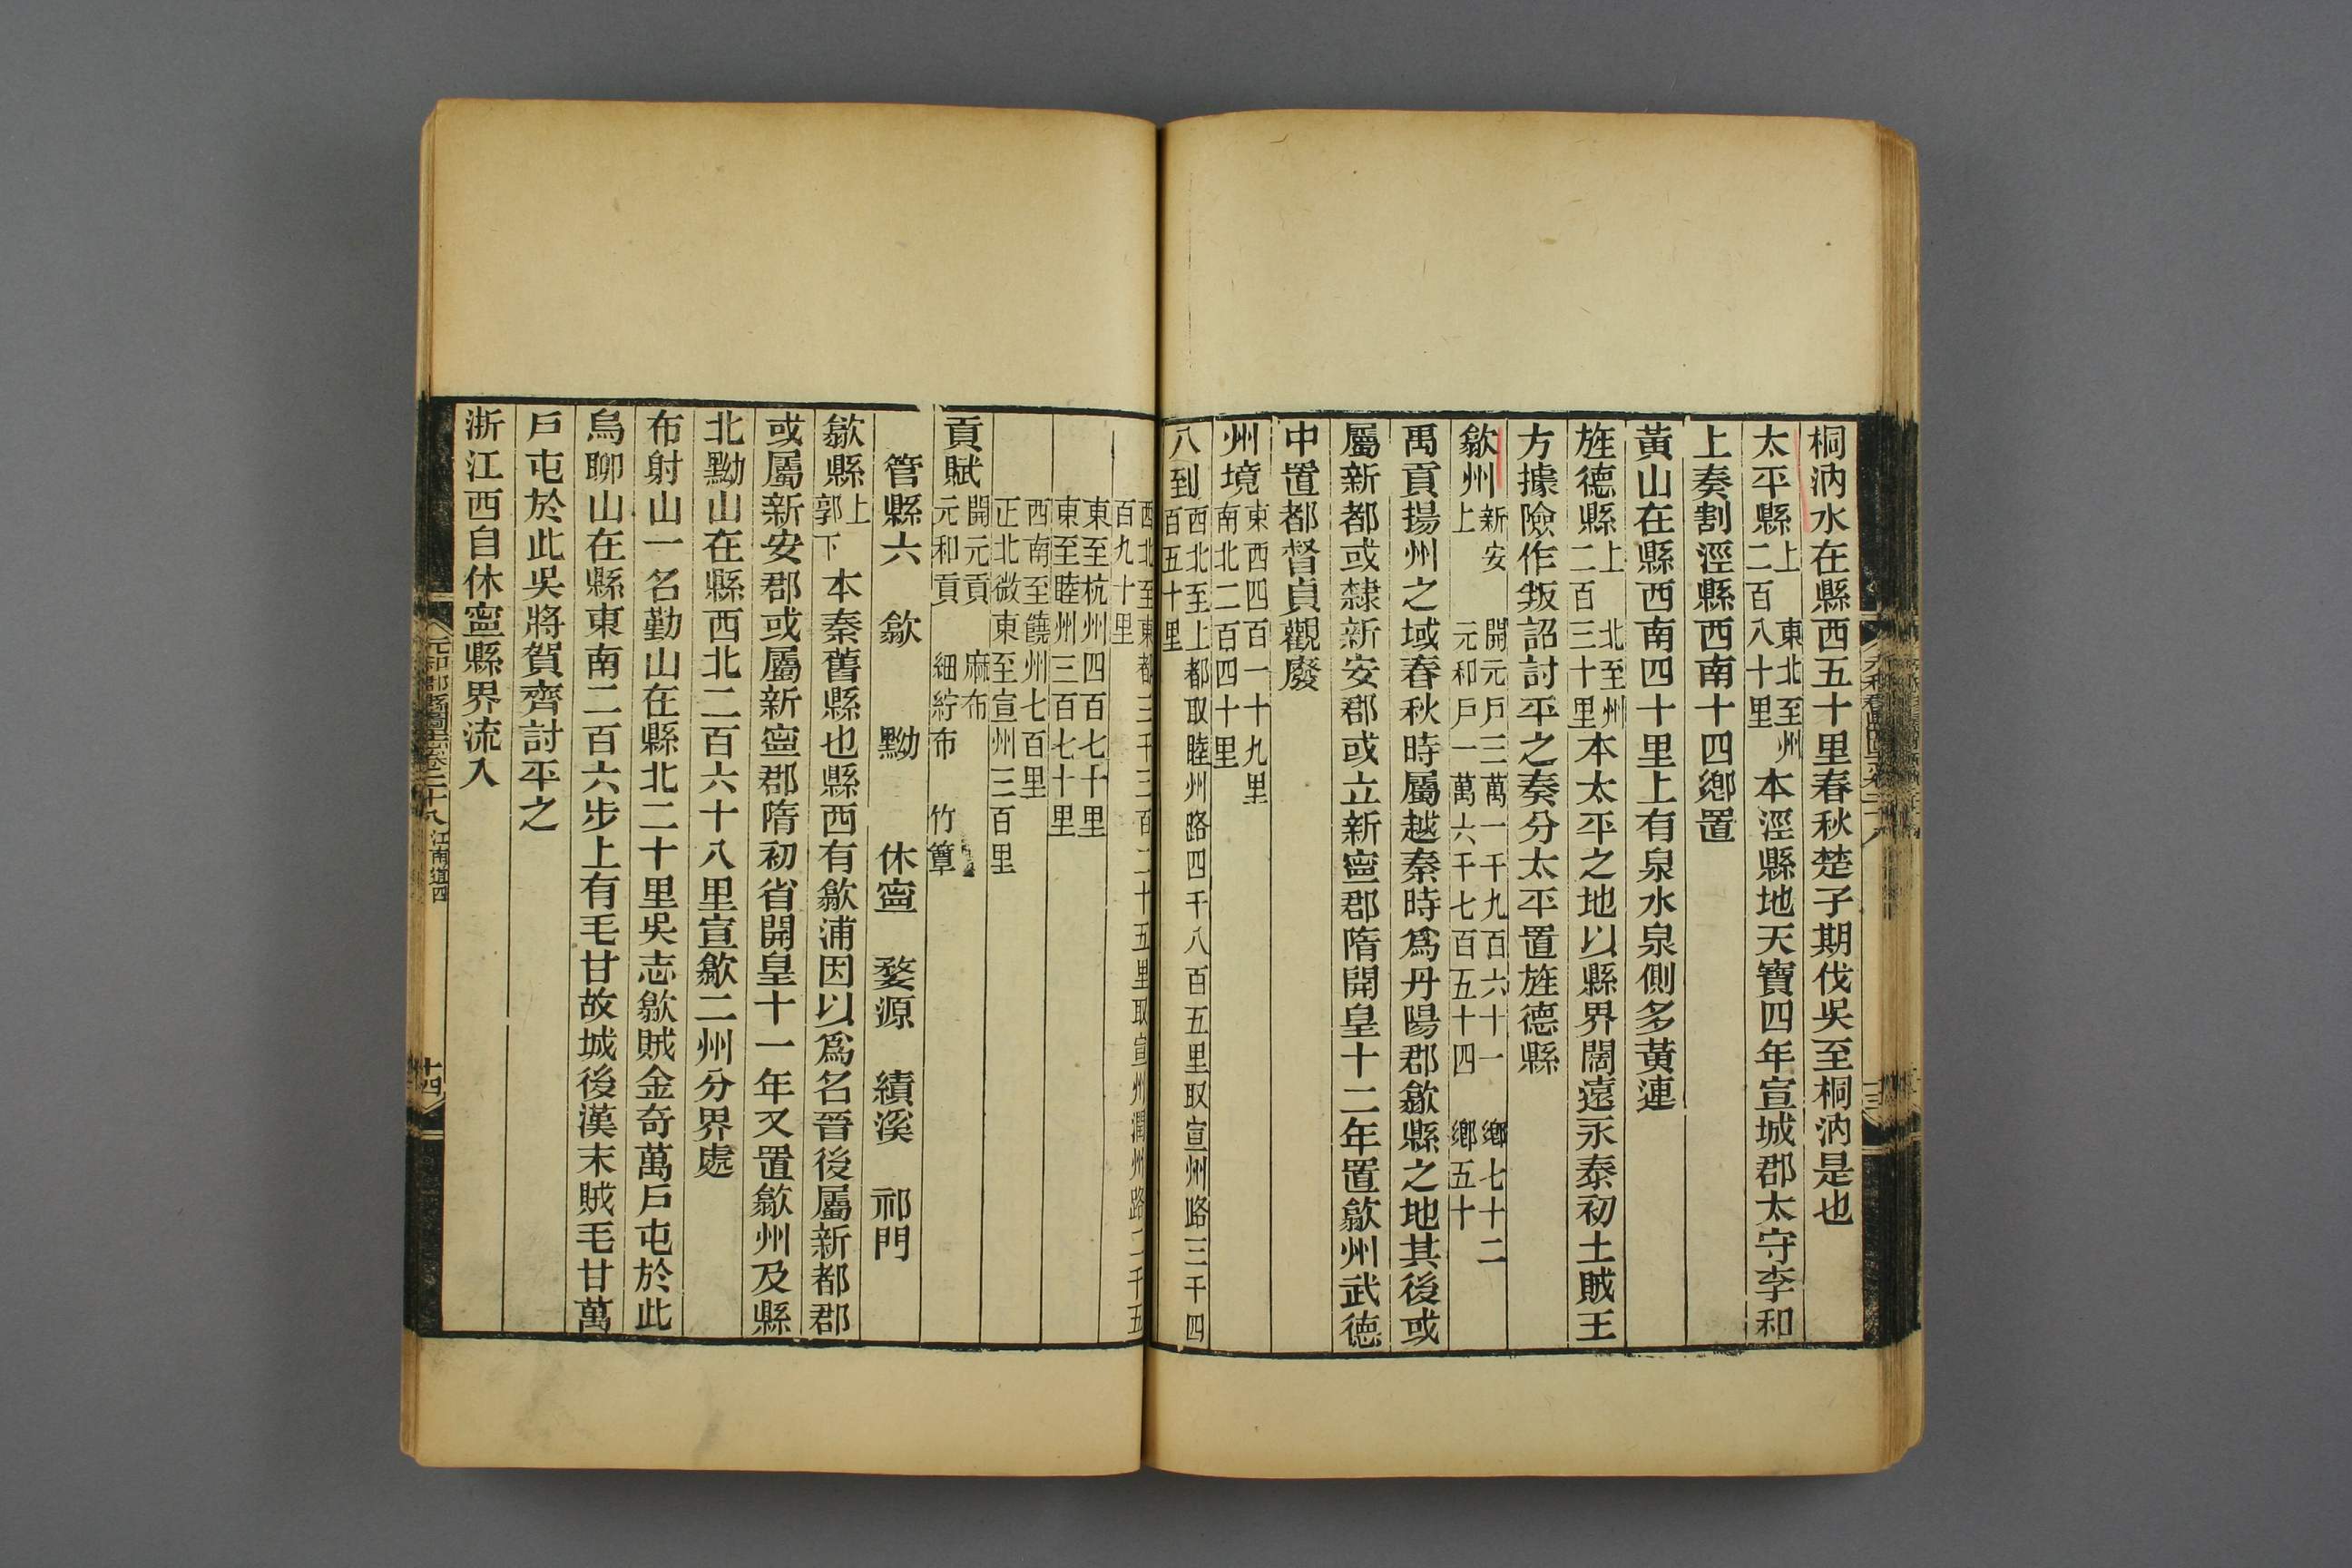 桐汭水在縣西五十里春秋楚子期伐吳至桐汭是也
太平縣上 東北至州二百八十里本涇縣地天寶四年宣城郡太守李和
上奏割涇縣西南十四鄉置
黃山在縣西南四十里上有泉水泉側多黃連
旌德縣上 北至州二百三十里本太平之地以縣界闊遠永泰初土賊王
方據險作叛詔討平之奏分太平置旌德縣
歙州新安上 開元戶三萬一千九百六十一 鄉七十二 元和戶一萬六千七百五十四 鄉五十
禹貢揚州之域春秋時屬越秦時爲丹陽郡歙縣之地其後或
屬新都或隸新安郡或立新寍郡隋開皇十二年置歙州武德
中置都督貞觀廢
州境東西四百一十九里南北二百四十里
八到西北至上都取睦州路四千八百五里取宣州路三千四百五十里
西北至東都三千三百二十五里取宣州潤州路二千五百九十里
東至杭州四百七十里東至睦州三百七十里
西南至饒州七百里正北微東至宣州三百里
貢賦開元貢 麻布元和貢 細紵布 竹簟
管縣六 歙 黝 休寍 婺源 績溪 祁門
歙縣上郭下 本秦舊縣也縣西有歙浦因以爲名晉後屬新都郡
或屬新安郡或屬新寍郡隋初省開皇十一年又置歙州及縣
北黝山在縣西北二百六十八里宣歙二州分界處
布射山一名勤山在縣北二十里吳志歙賊金奇萬戶屯於此
烏聊山在縣東南二百六步上有毛甘故城後漢末賊毛甘萬
戶屯於此吳將賀齊討平之
浙江西自休寍縣界流入
元和郡縣圖志卷二十八 江南道四
十四